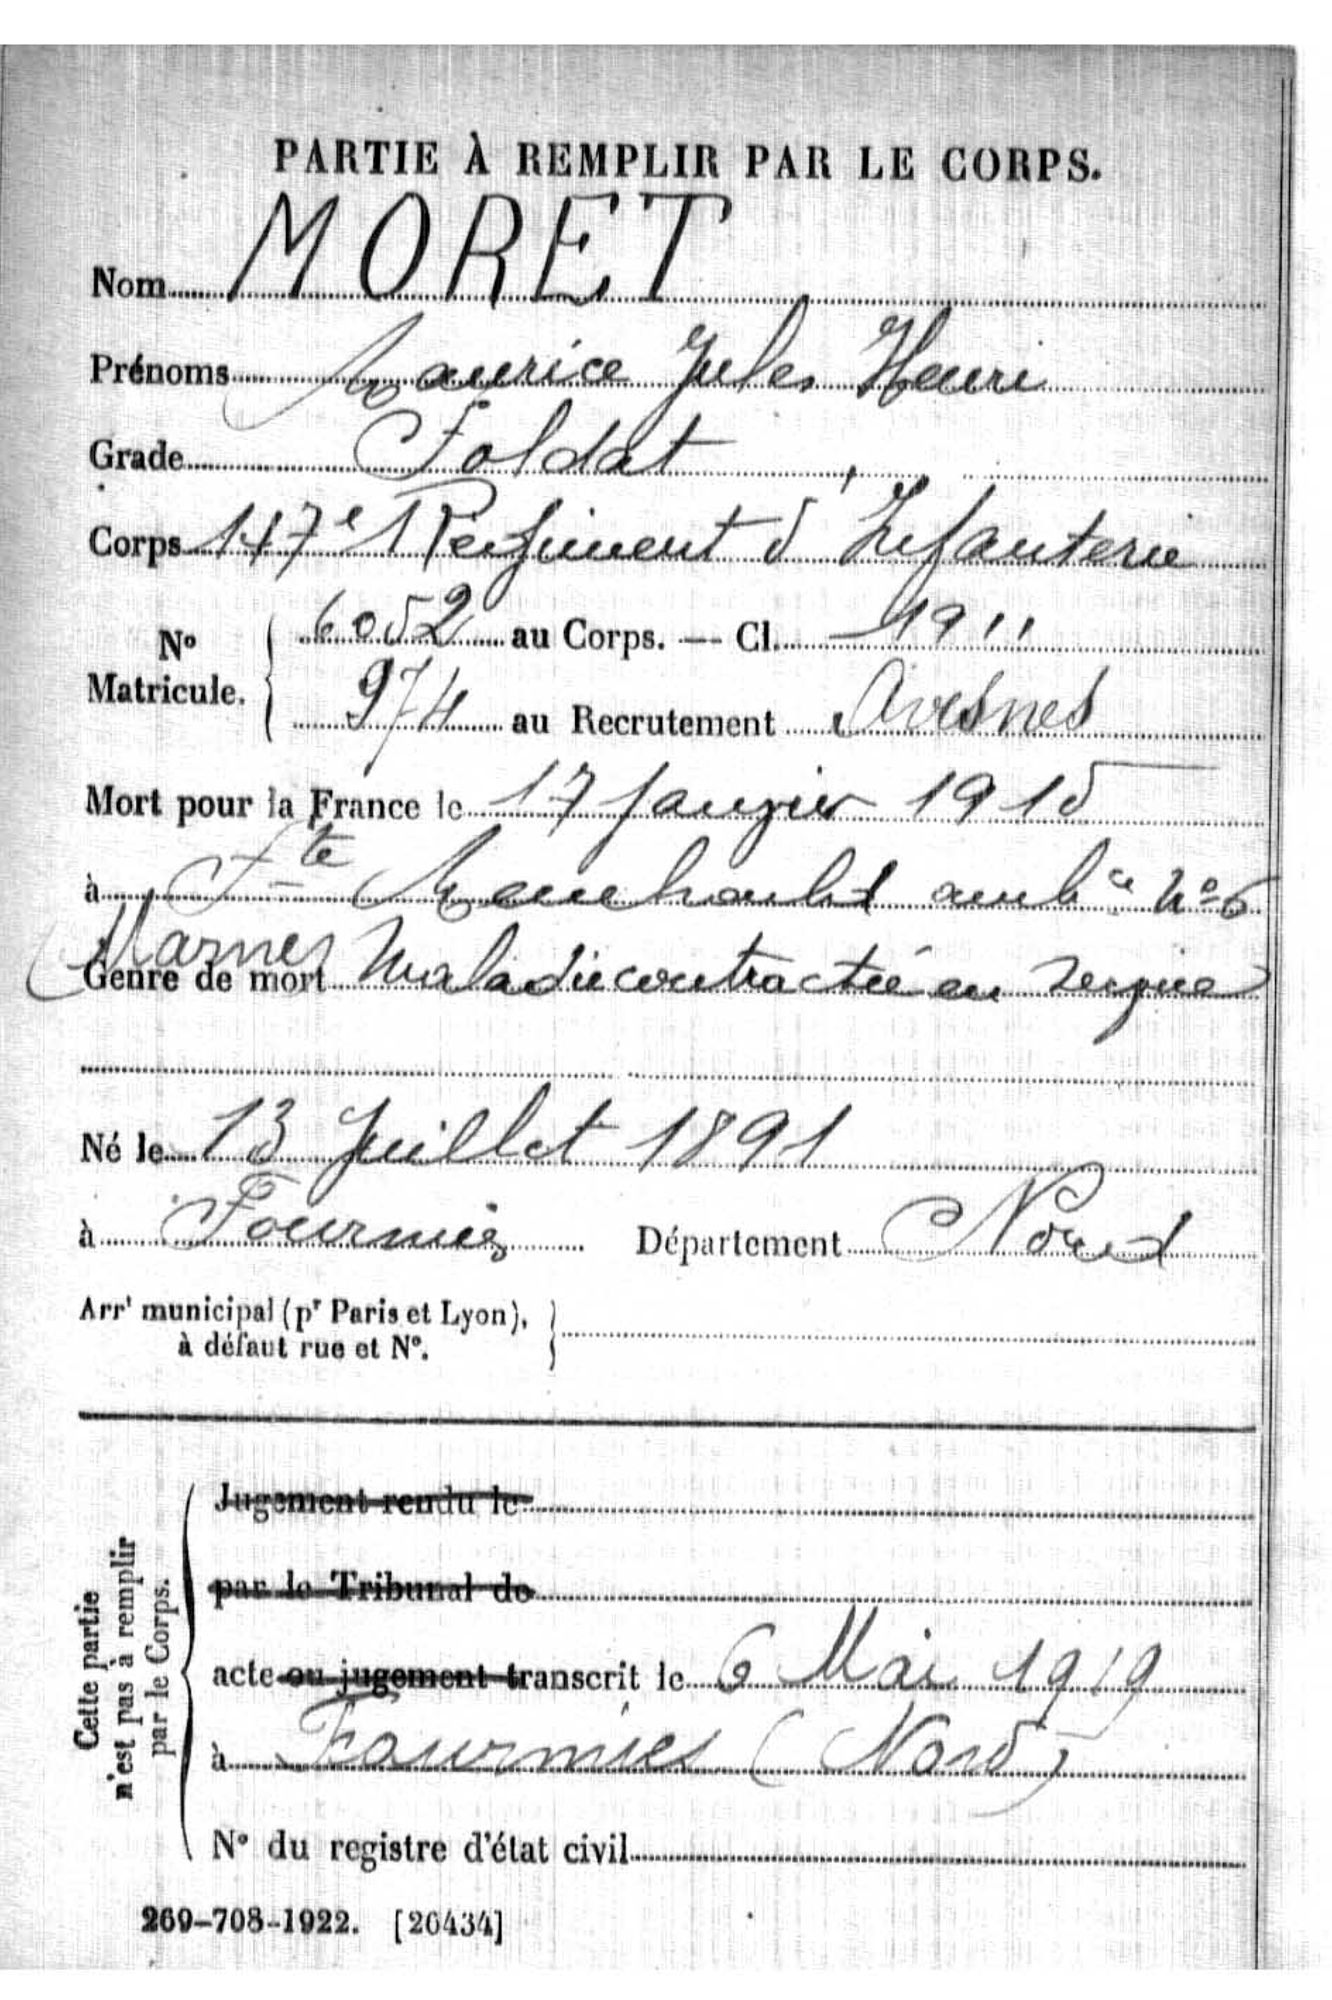 PARTIE À REMPLIR PAR LE CORPS.
Nom MORET
Prénoms Maurice Jules Henri
Grade Soldat
Corps 147e Régiment d'Infanterie
No Matricule. { 6052 au Corps. — Cl. 1911
974 au Recrutement Avesnes
Mort pour la France le 17 Janvier 1915
à Ste Menehould ambce No 6
(Marne)
Genre de mort Maladie contractée en service
Né le 13 Juillet 1891
à Fourmies Département Nord
Arrt municipal (pr Paris et Lyon),
à défaut rue et No. }
Cette partie
n'est pas à remplir
par le Corps.
Jugement rendu le
par le Tribunal de
acte ou jugement transcrit le 6 Mai 1919
à Fourmies (Nord)
No du registre d'état civil
269-708-1922. [26434]